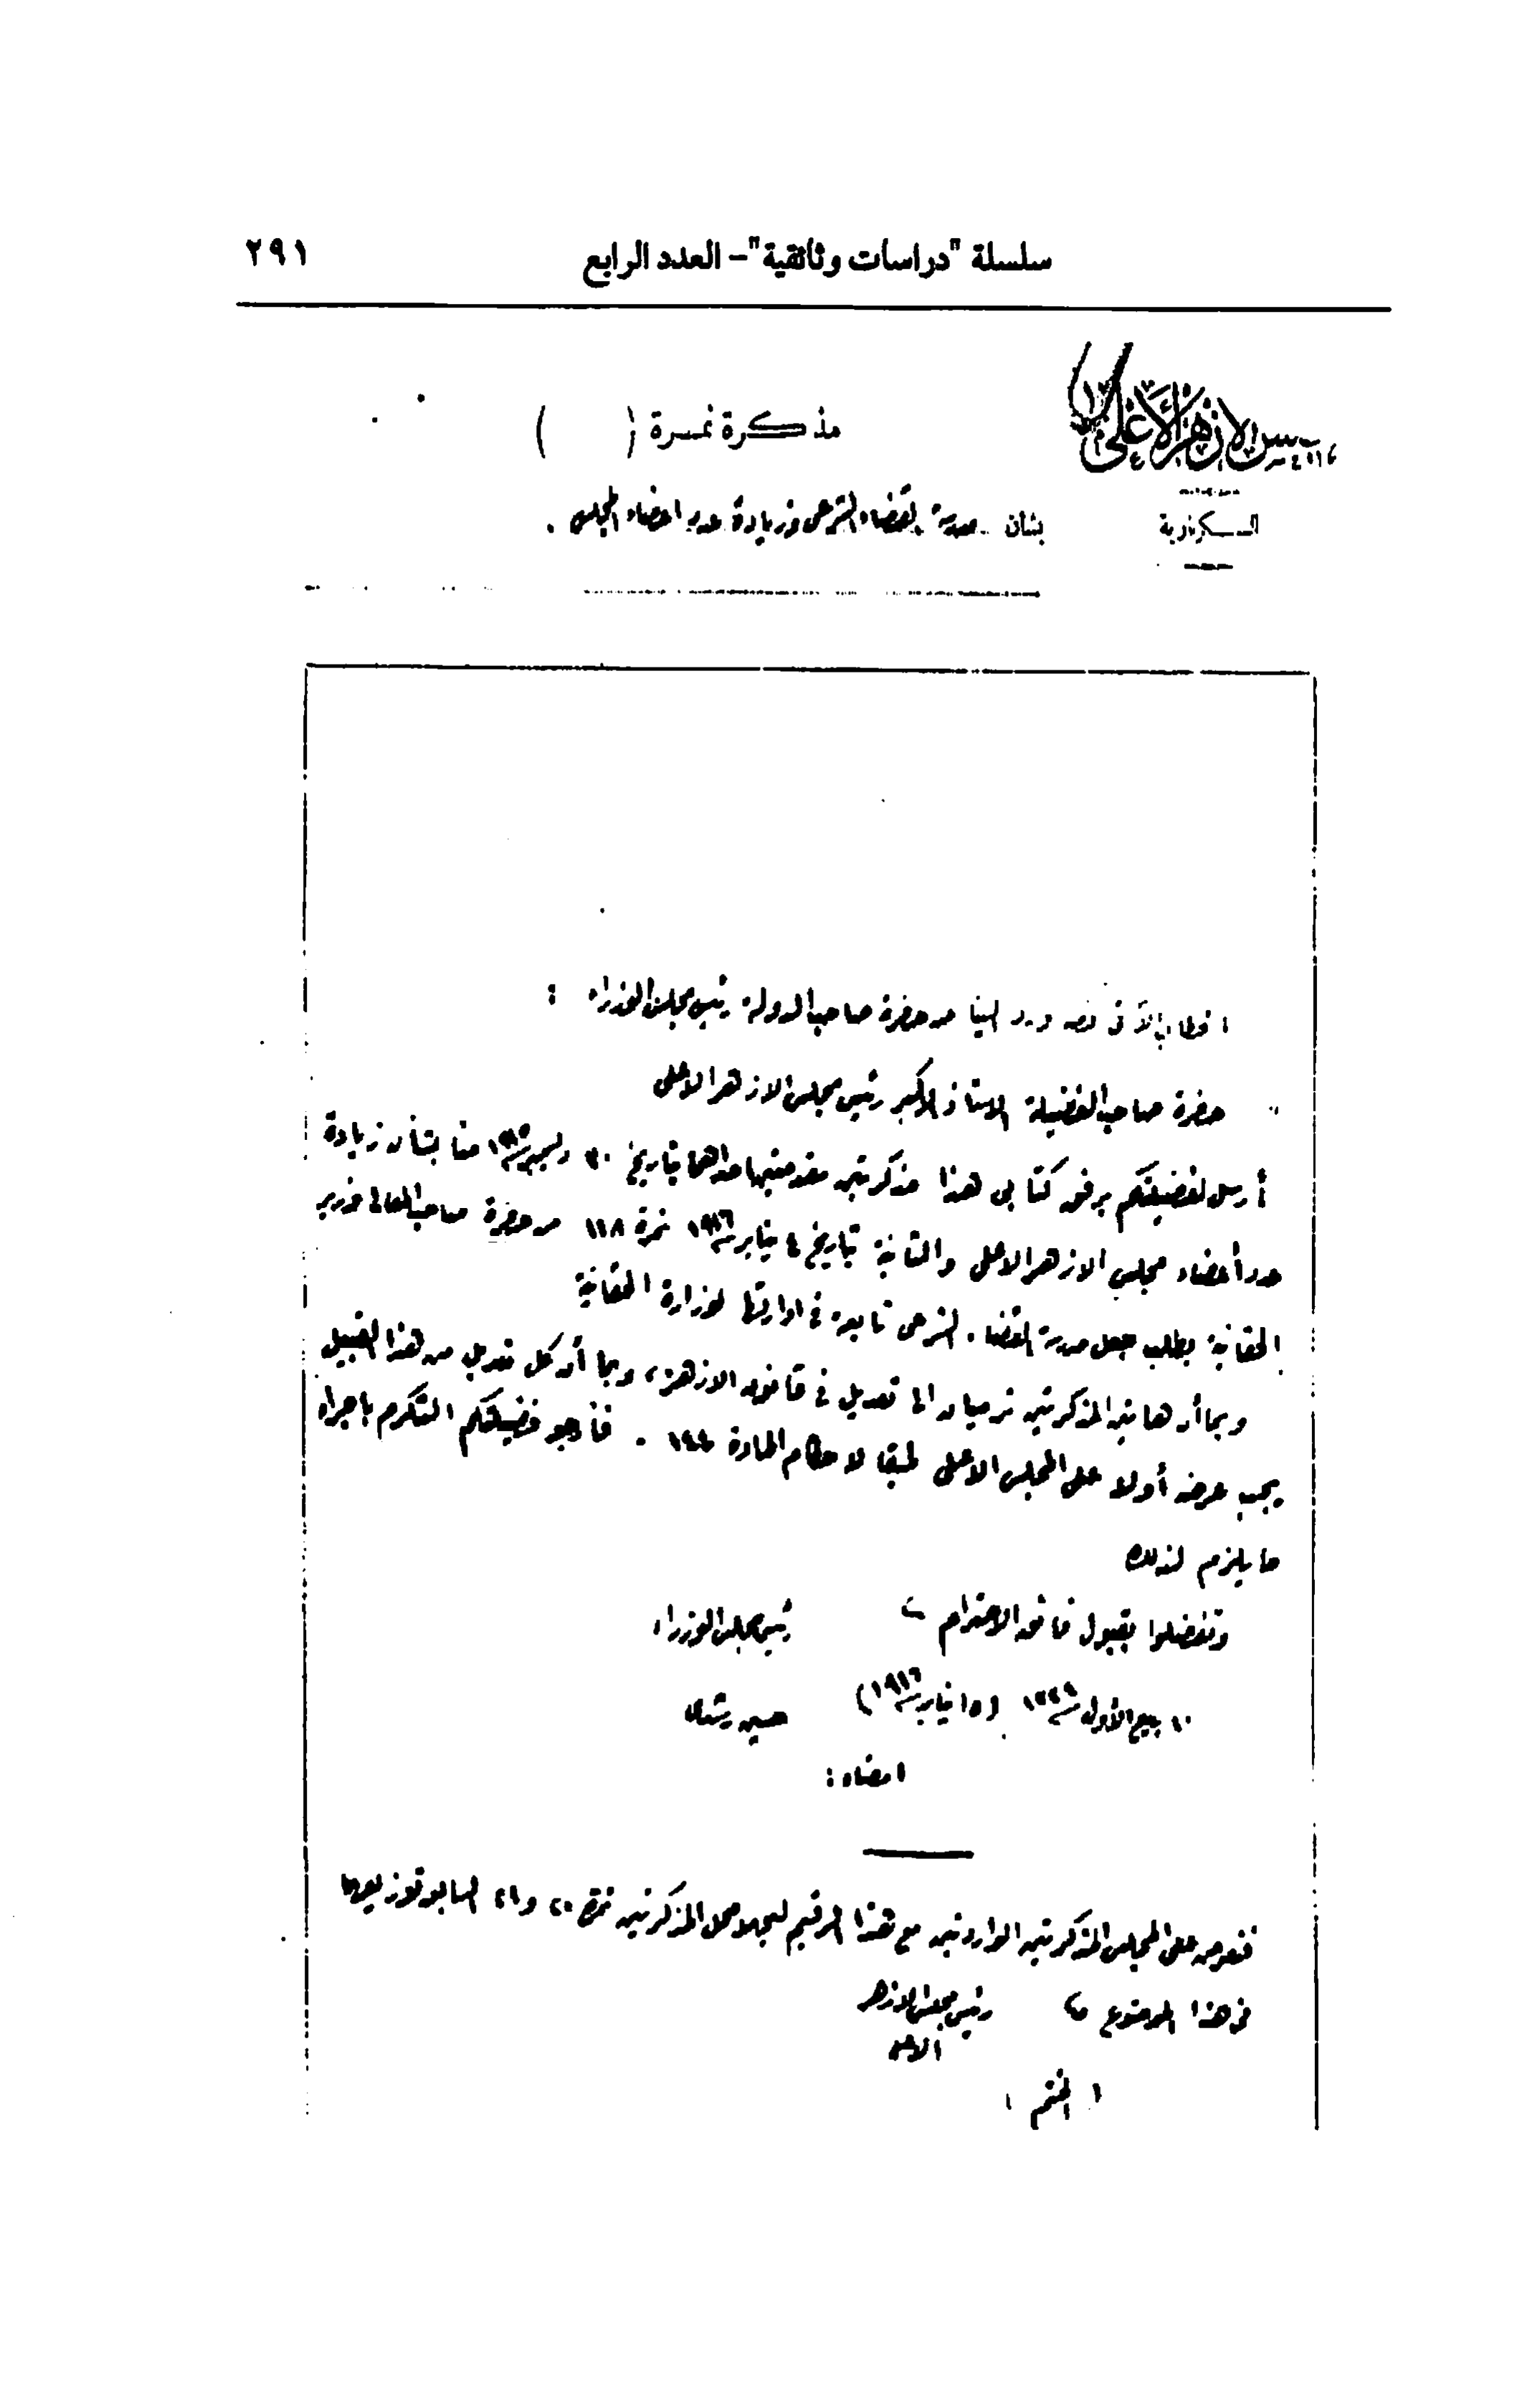 سلسلة "دراسات وثائقية" – العدد الرابع
٢٩١
مجلس الازهر الأعلى
السكرتارية
مذكرة نمرة ( )
بشأن مدرسة القضاء الشرعى وزيادة عدد اعضاء المجلس .
الخطاب الآتى نصه ورد الينا من حضرة صاحب الدولة رئيس مجلس الوزراء :
حضرة صاحب الفضيلة الاستاذ الاكبر رئيس مجلس الازهر الاعلى
أرسل لفضيلتكم برفق كتابى هذا مذكرتين مقدمتين احداهما بتاريخ ٣٠ ديسمبر سنة ١٩١٥ منا بشأن زيادة
عدد أعضاء مجلس الازهر الاعلى والثانية بتاريخ ٤ يناير سنة ١٩١٦ نمرة ١١٨ من حضرة صاحب المعالى وزير
الحقانية بطلب جعل مدرسة القضاء الشرعى تابعة فى ادارتها لوزارة الحقانية
وبما أن هاتين المذكرتين ترميان الى تعديل فى قانون الازهر ، وبما أن كل تعديل من هذا القبيل
يجب عرضه أولا على المجلس الاعلى طبقا لاحكام المادة . فأرجو فضيلتكم التكرم باجراء
ما يلزم لذلك
وتفضلوا بقبول فائق الاحترام
رئيس مجلس الوزراء
١٠ ربيع الأول سنة (١٥ يناير سنة ١٩١٦)
حسين رشدى
امضاء :
فنعرض على المجلس المذكرتين الواردتين مع هذا الرقيم محل المذكرتين نمرة ٢٠ و ٢١ السابق توزيعها
فى هذا الموضوع
رئيس مجلس الازهر
الاعلى
( الختم )